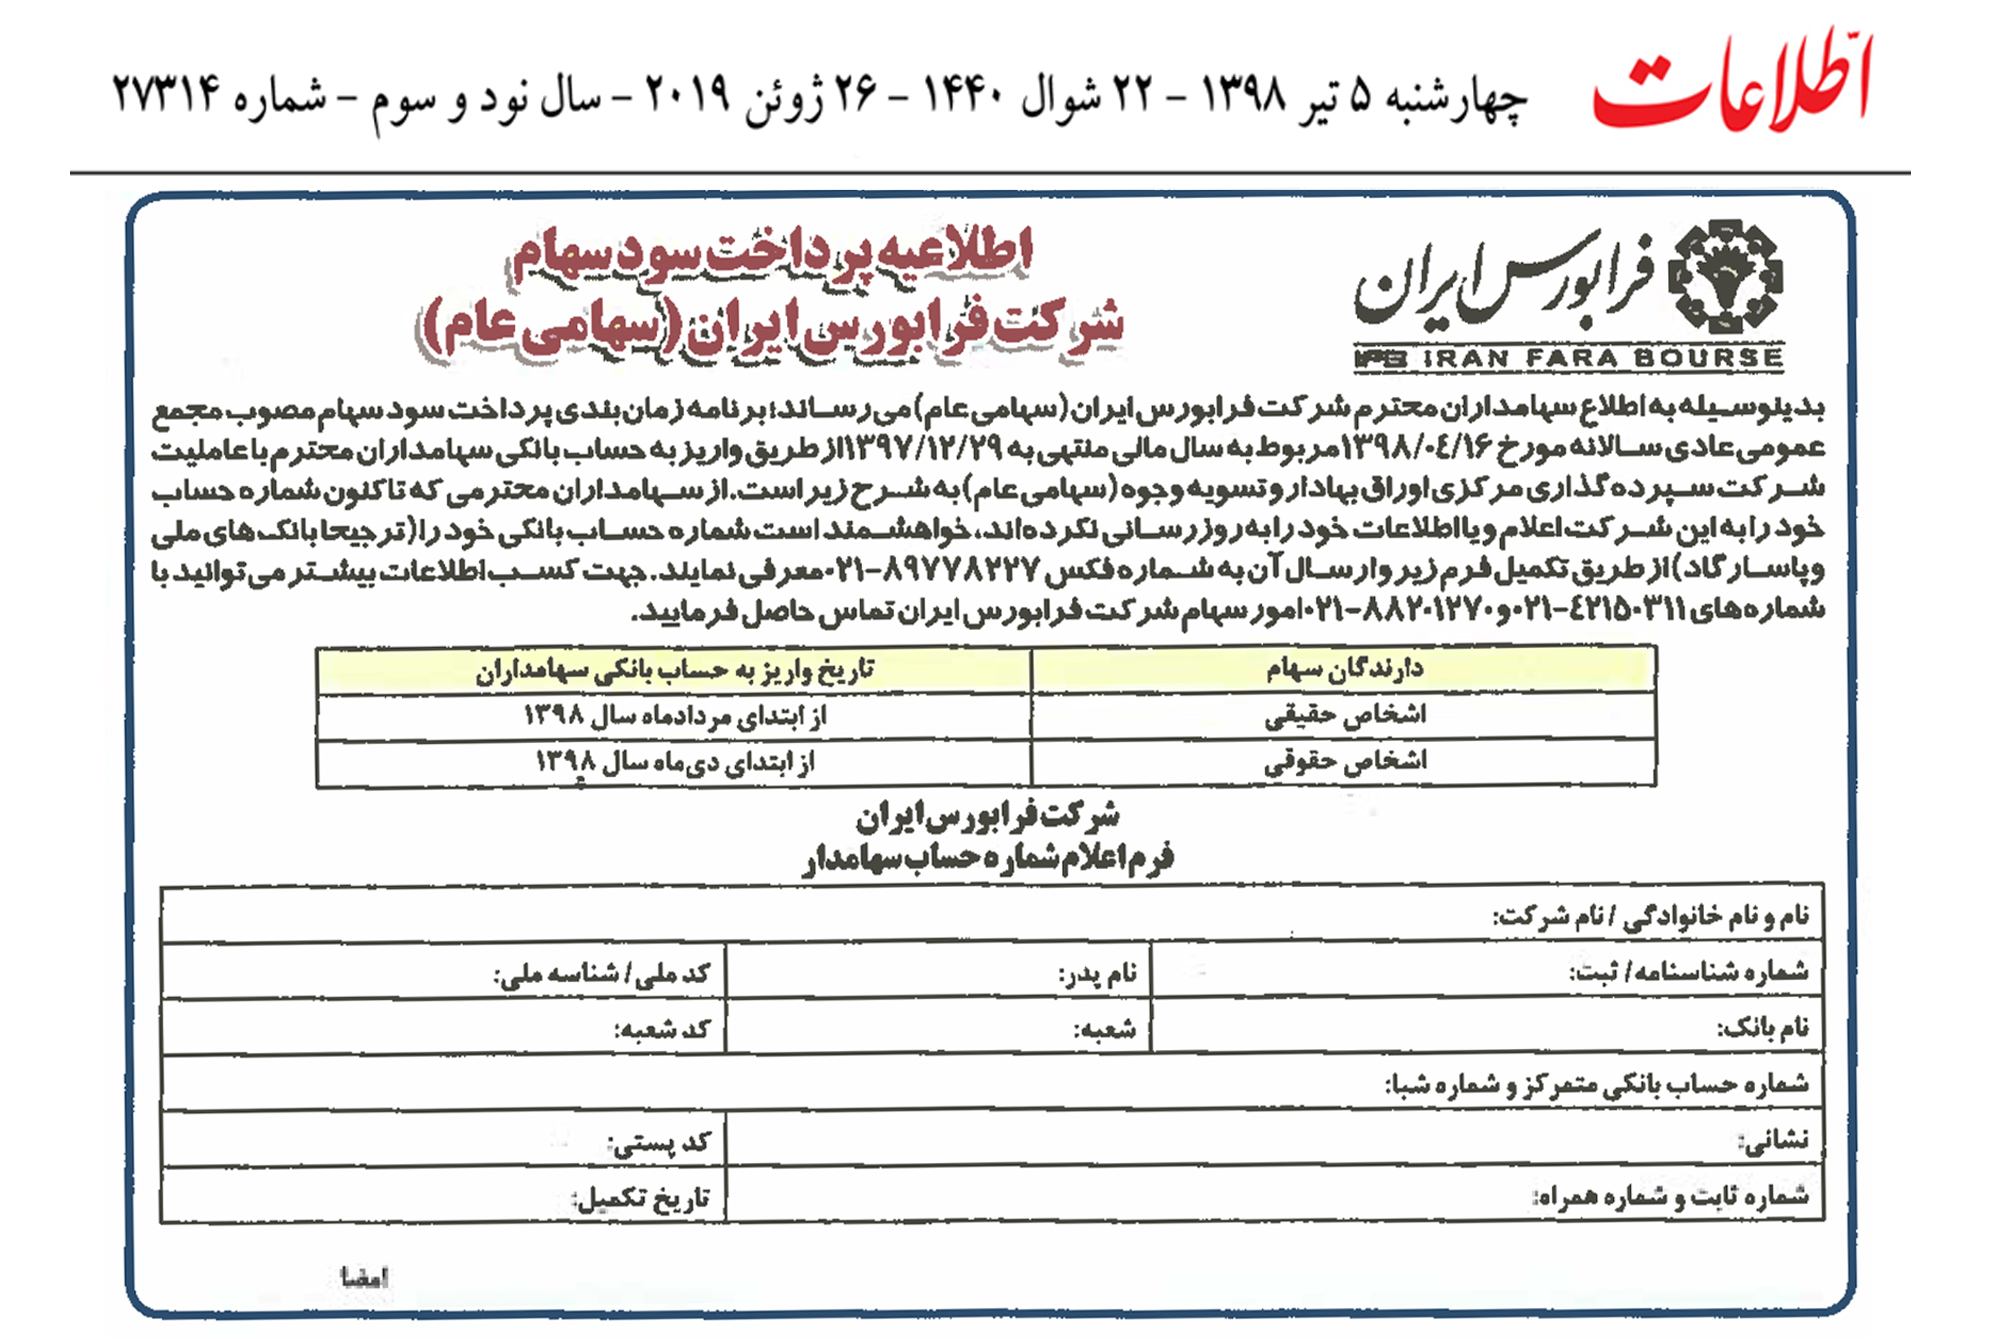 اطلاعات
چهارشنبه ۵ تیر ۱۳۹۸ - ۲۲ شوال ۱۴۴۰ - ۲۶ ژوئن ۲۰۱۹ - سال نود و سوم - شماره ۲۷۳۱۴
فرابورس ایران
IFB IRAN FARA BOURSE
اطلاعیه پرداخت سود سهام
شرکت فرابورس ایران (سهامی عام)
بدینوسیله به اطلاع سهامداران محترم شرکت فرابورس ایران (سهامی عام) می‌رساند؛ برنامه زمان‌بندی پرداخت سود سهام مصوب مجمع
عمومی عادی سالانه مورخ ۱۳۹۸/۰۴/۱۶ مربوط به سال مالی منتهی به ۱۳۹۷/۱۲/۲۹ از طریق واریز به حساب بانکی سهامداران محترم با عاملیت
شرکت سپرده‌گذاری مرکزی اوراق بهادار و تسویه وجوه (سهامی عام) به شرح زیر است. از سهامداران محترمی که تاکنون شماره حساب
خود را به این شرکت اعلام و یا اطلاعات خود را به روز رسانی نکرده‌اند، خواهشمند است شماره حساب بانکی خود را (ترجیحا بانک‌های ملی
و پاسارگاد) از طریق تکمیل فرم زیر و ارسال آن به شماره فکس ۸۹۷۷۸۲۲۷-۰۲۱ معرفی نمایند. جهت کسب اطلاعات بیشتر می‌توانید با
شماره‌های ۴۲۱۵۰۳۱۱-۰۲۱ و ۸۸۲۰۱۲۷۰-۰۲۱ امور سهام شرکت فرابورس ایران تماس حاصل فرمایید.
دارندگان سهام تاریخ واریز به حساب بانکی سهامداران
اشخاص حقیقی از ابتدای مردادماه سال ۱۳۹۸
اشخاص حقوقی از ابتدای دی‌ماه سال ۱۳۹۸
شرکت فرابورس ایران
فرم اعلام شماره حساب سهامدار
نام و نام خانوادگی / نام شرکت:
شماره شناسنامه/ ثبت: نام پدر: کد ملی/ شناسه ملی:
نام بانک: شعبه: کد شعبه:
شماره حساب بانکی متمرکز و شماره شبا:
نشانی: کد پستی:
شماره ثابت و شماره همراه: تاریخ تکمیل:
امضا